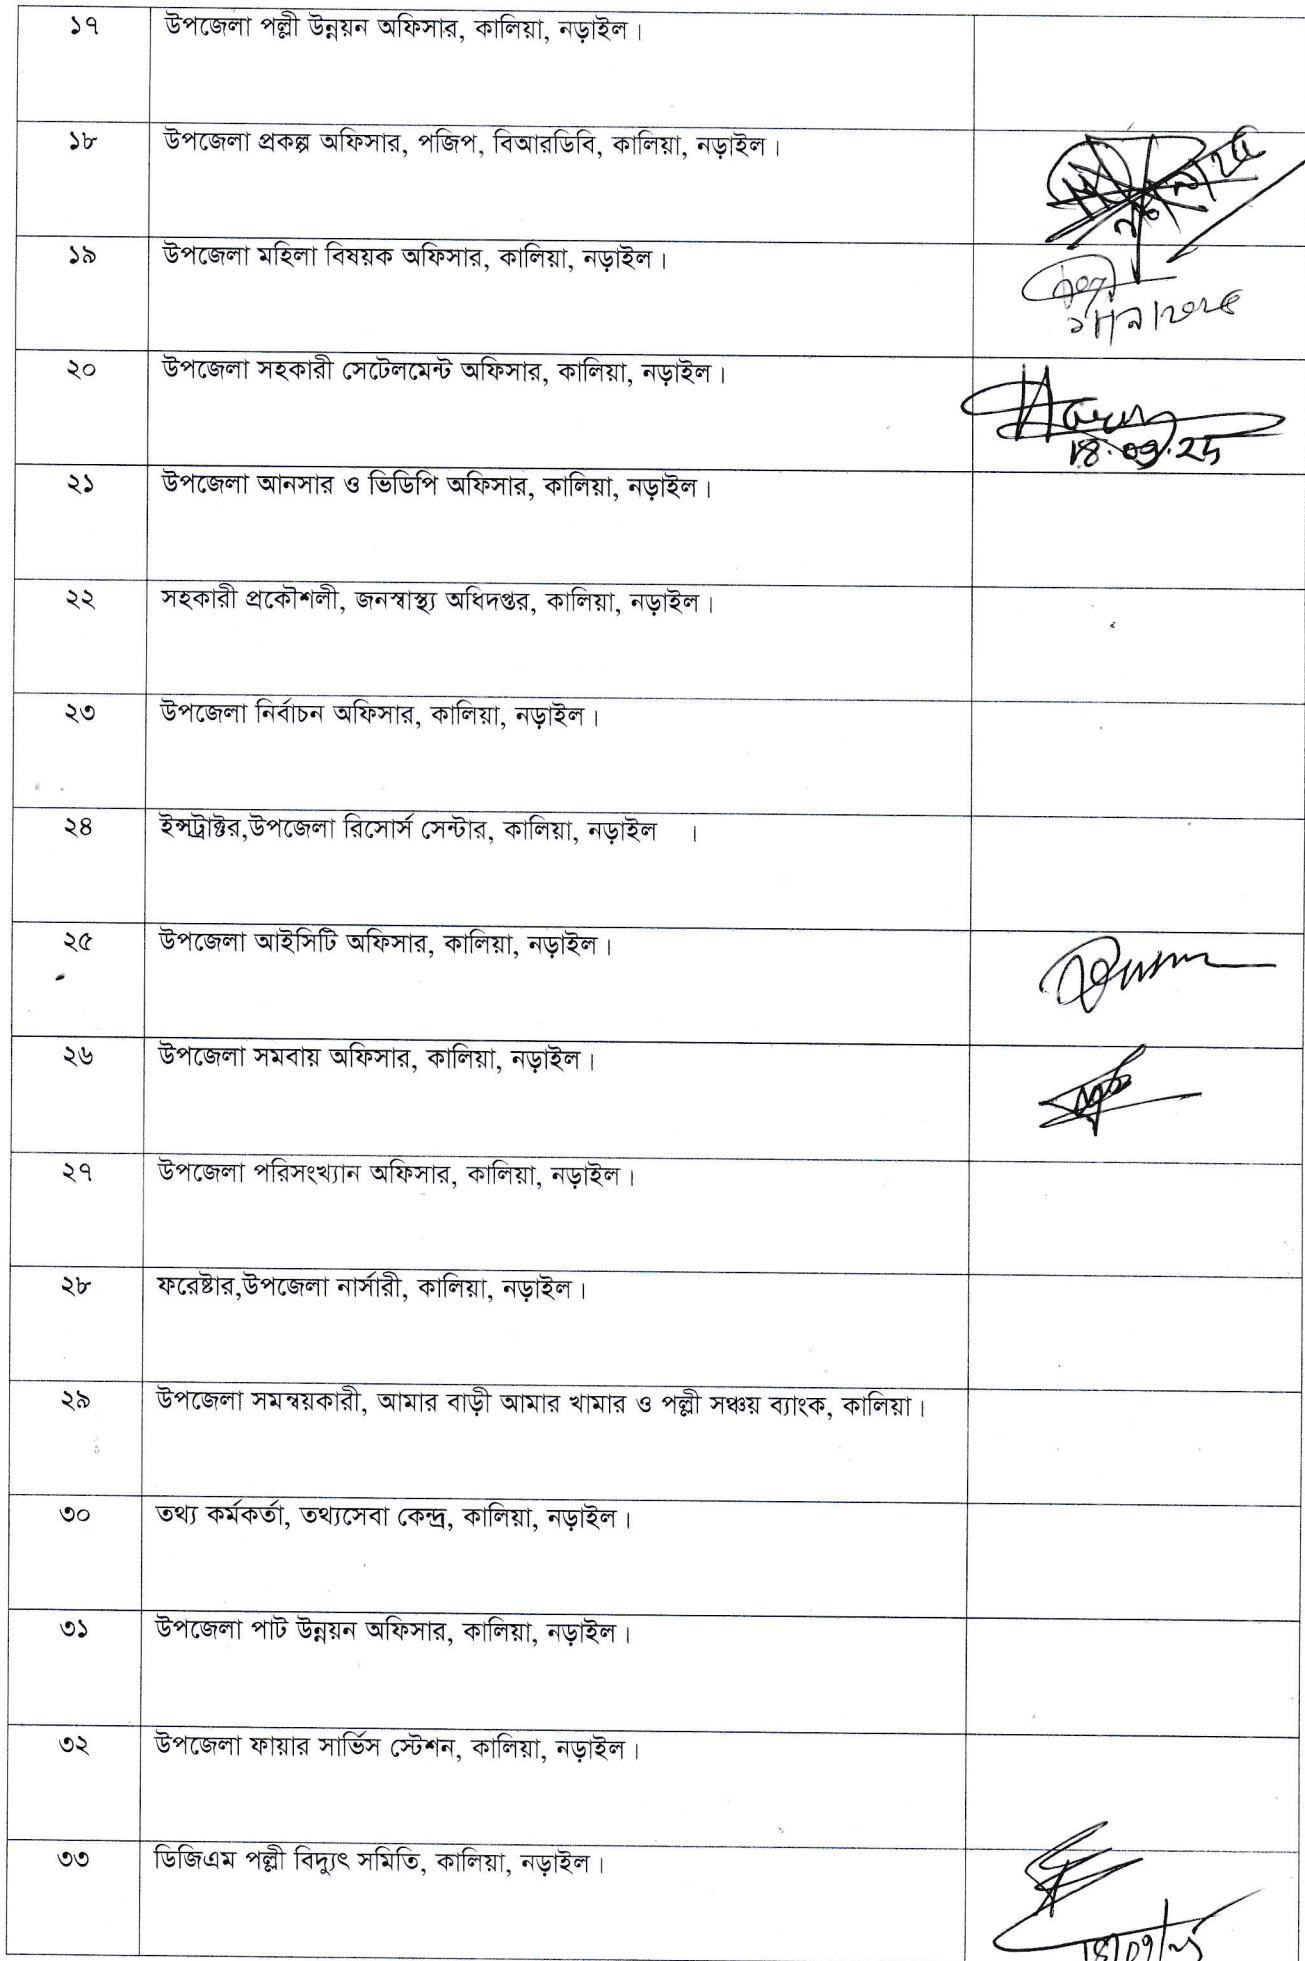 ১৭ উপজেলা পল্লী উন্নয়ন অফিসার, কালিয়া, নড়াইল।
১৮ উপজেলা প্রকল্প অফিসার, পজিপ, বিআরডিবি, কালিয়া, নড়াইল।
১৯ উপজেলা মহিলা বিষয়ক অফিসার, কালিয়া, নড়াইল।
২০ উপজেলা সহকারী সেটেলমেন্ট অফিসার, কালিয়া, নড়াইল।
18.09.25
২১ উপজেলা আনসার ও ভিডিপি অফিসার, কালিয়া, নড়াইল।
২২ সহকারী প্রকৌশলী, জনস্বাস্থ্য অধিদপ্তর, কালিয়া, নড়াইল।
২৩ উপজেলা নির্বাচন অফিসার, কালিয়া, নড়াইল।
২৪ ইন্সট্রাক্টর,উপজেলা রিসোর্স সেন্টার, কালিয়া, নড়াইল ।
২৫ উপজেলা আইসিটি অফিসার, কালিয়া, নড়াইল।
২৬ উপজেলা সমবায় অফিসার, কালিয়া, নড়াইল।
২৭ উপজেলা পরিসংখ্যান অফিসার, কালিয়া, নড়াইল।
২৮ ফরেষ্টার,উপজেলা নার্সারী, কালিয়া, নড়াইল।
২৯ উপজেলা সমন্বয়কারী, আমার বাড়ী আমার খামার ও পল্লী সঞ্চয় ব্যাংক, কালিয়া।
৩০ তথ্য কর্মকর্তা, তথ্যসেবা কেন্দ্র, কালিয়া, নড়াইল।
৩১ উপজেলা পাট উন্নয়ন অফিসার, কালিয়া, নড়াইল।
৩২ উপজেলা ফায়ার সার্ভিস স্টেশন, কালিয়া, নড়াইল।
৩৩ ডিজিএম পল্লী বিদ্যুৎ সমিতি, কালিয়া, নড়াইল।